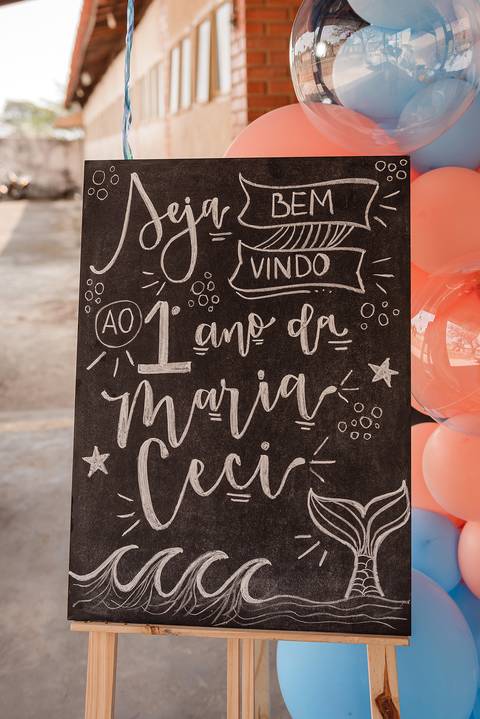 Seja BEM
VINDO
AO 1º ano da
Maria
Ceci